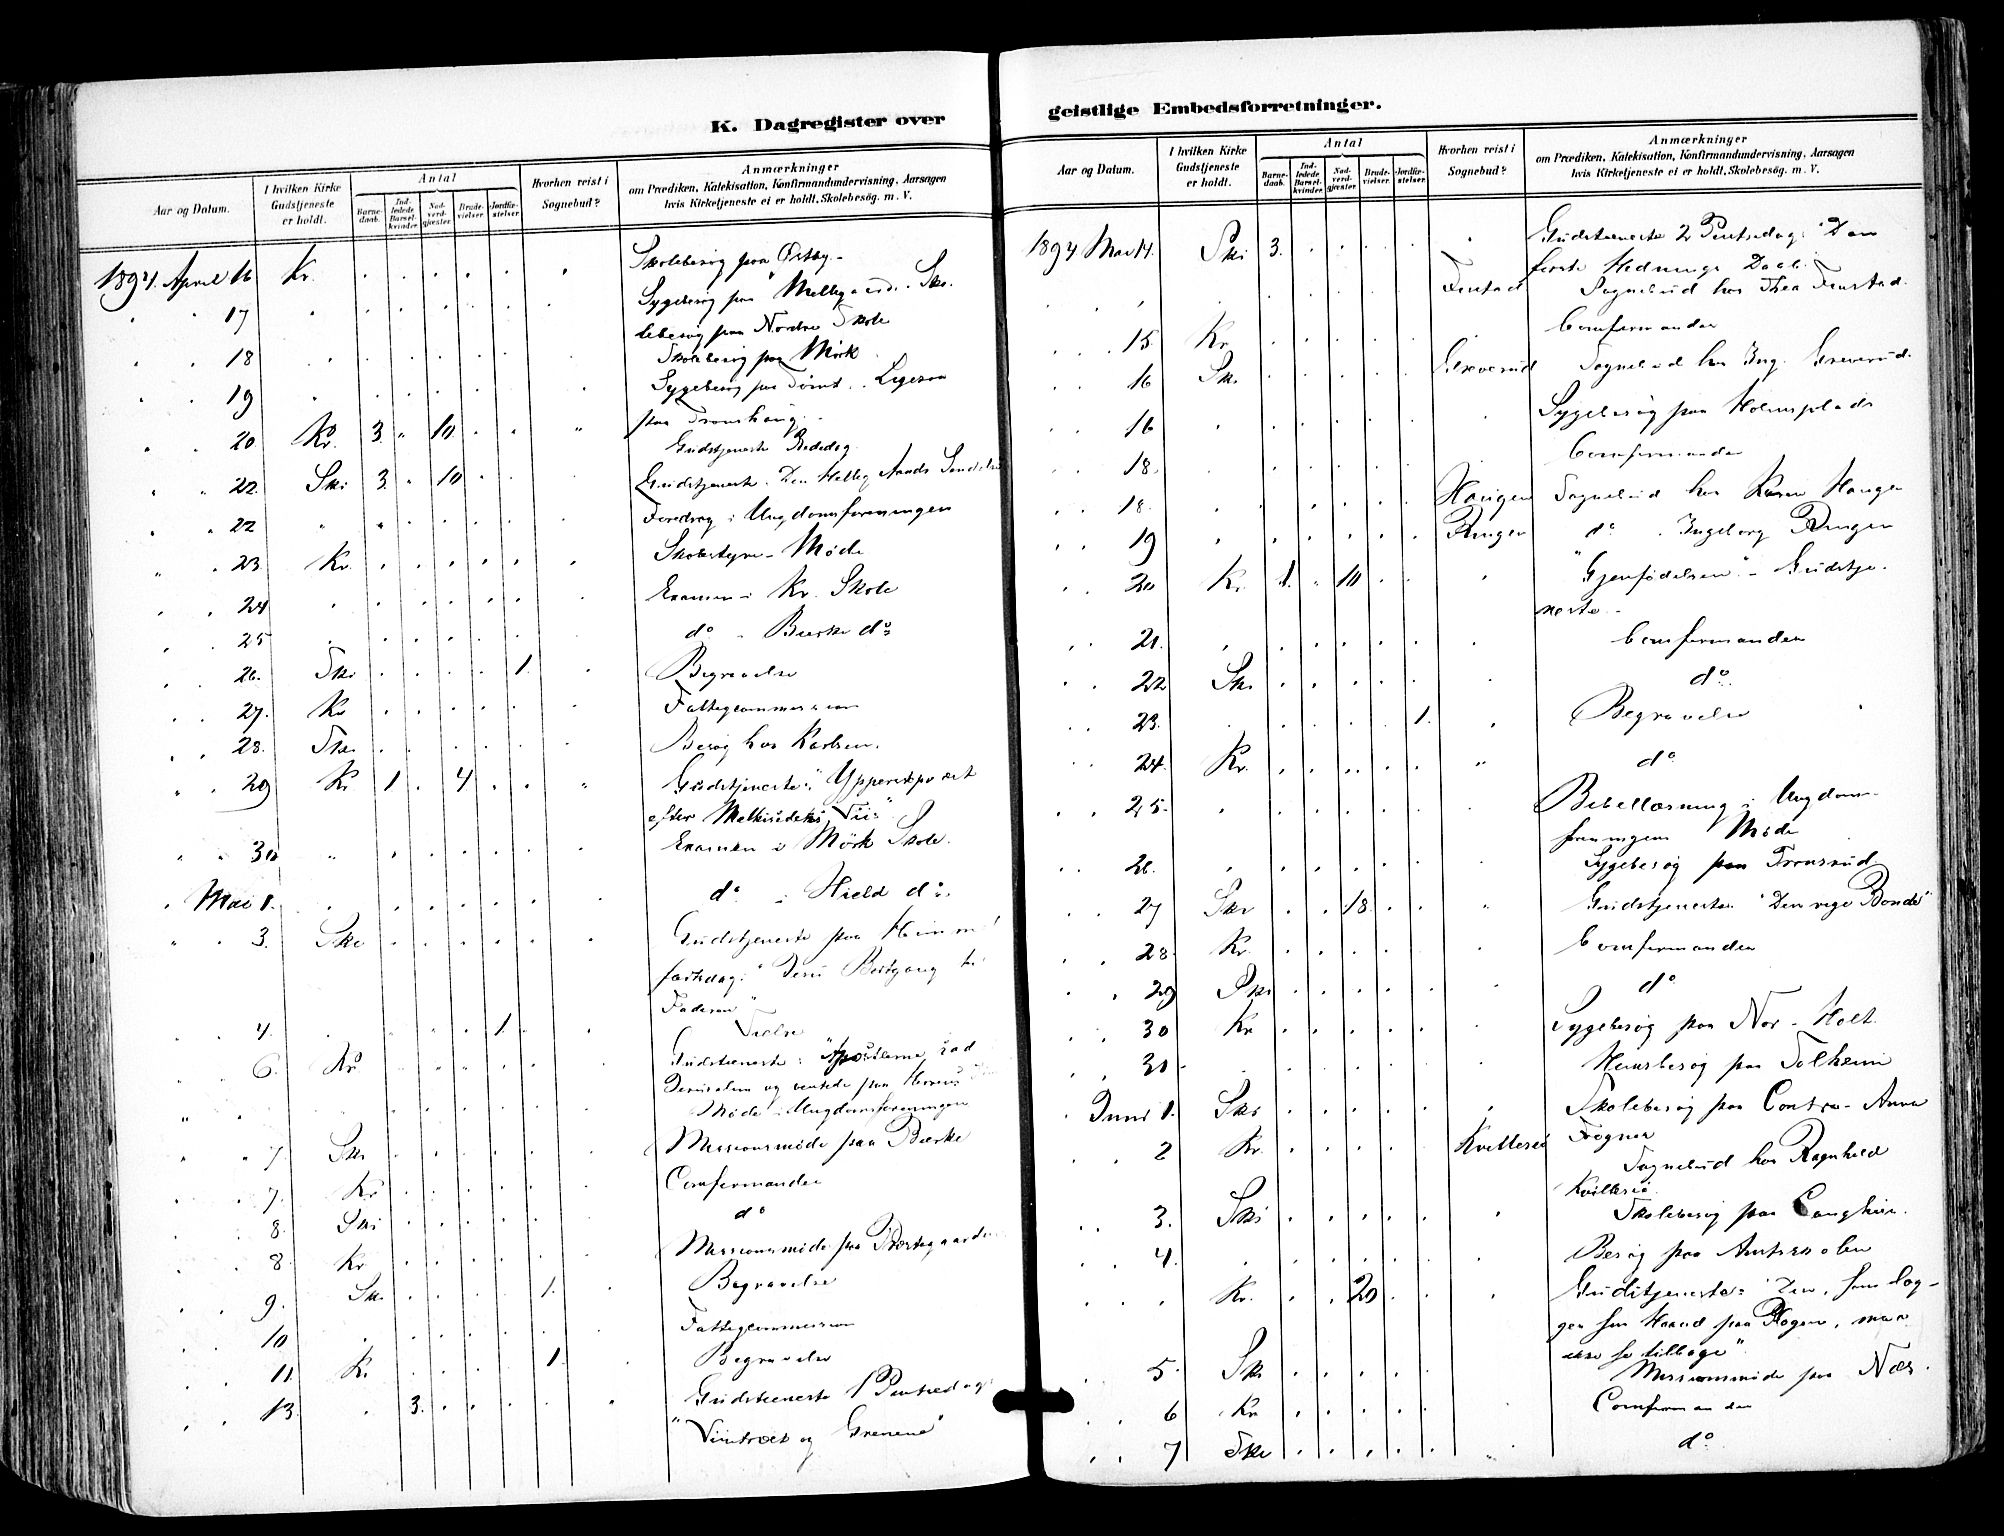 K. Dagregister over
Aar og Datum.
I hvilken Kirke Gudstjeneste er holdt.
Antal
Barne-daab.
Ind-ledede Barsel-kvinder.
Nad-verd-gjæster.
Brude-vielser.
Jordfæ-stelser.
Hvorhen reist i Sognebud?
Anmærkninger
om Prædiken, Katekisation, Konfirmandundervisning, Aarsagen
hvis Kirketjeneste ei er holdt, Skolebesøg. m. V.
1894. April 16 Kr. Skolebesøg paa Østby
" " 17 Sygebesøg paa Skolebesøg paa Nordre Skole
" " 18 Skolebesøg paa Mörk
" " 19 Sygebesøg paa
" " 20 Kr. 3. " 10 Gudstjeneste Bededag
" " 22. Ski 3. " 10 Gudstjeneste. Den Hellig Aands
" " 22 Foredrag i Ungdomsforeningen
" " 23 Kr. Skolestyre-Møde
" " 24 Examen i Kr. Skole
25 do - do
" " 26. Ski 1. Begravelse
" " 27. Kr Fattigcommission
" " 28. Ski Besøg hos Karlsen.
" " 29 Kr 1 . 4 Gudstjeneste: "Ypperstepræst
efter Melkisedeks Viis"
" " 30 Examen i Mörk Skole.
" Mai 1. do i do
" " 3. Ski Gudstjeneste paa Himmel
fartsdag: "Jesu Bortgang til
Faderen"
" " 4. 1 Vielse
" " 6. Kr Gudstjeneste: "Apostlerne
Jerusalem og ventede paa
Møde i Ungdomsforeningen
" " 7 Ski Missionsmøde paa
" " 7. Kr Comfirmander
" " 8. Ski do
" " 8. Kr Missionsmøde paa Præstegaarden
" " 9. Ski 1. Begravelse
" " 10 Fattigcommission
" " 11. Kr. 1. Begravelse
" " 13. 3. Gudstjeneste 1 Pintsedag
"Vintræet og Grenene"
geistlige Embedsforretninger.
Aar og Datum.
I hvilken Kirke Gudstjeneste er holdt.
Antal
Barne-daab.
Ind-ledede Barsel-kvinder.
Nad-verd-gjæster.
Brude-vielser.
Jordfæ-stelser.
Hvorhen reist i Sognebud?
Anmærkninger
om Prædiken, Katekisation, Konfirmandundervisning, Aarsagen
hvis Kirketjeneste ei er holdt, Skolebesøg. m. V.
1894 Mai 14. Ski 3. Gudstjeneste 2 Pintsedag: "Den
første Hednings Daab.
Finstad Sognebud hos Thea Finstad.
" " 15 Kr. Comfirmander
" " 16 Ski Greverud Sognebud hos Ing. Greverud.
" " 16 Sygebesøg paa Holmsplads
" " 18. Comfirmander
" " 18. Haugen Sognebud hos Karen Haugen
" " 19 Ringer do Ingeborg Ringer
" " 20 Kr 1. " 10 "Gjenfødelsen" - Gudstje-
neste -
" " 21. Comfirmander
" " 22 Ski do
" " 23. 1. Begravelse
" " 24. Kr. do
" " 25. Bibellæsning i Ungdoms-
foreningens Møde
" " 26. Sygebesøg paa Tronsrud
" " 27 Ski 18. Gudstjeneste "Den rige Bonde"
" " 28. Kr. Comfirmander
" " 29 Ski do
" " 30 Kr Sygebesøg paa Nor-Holt.
" " 31 Husbesøg paa Solheim
" Juni 1. Ski Skolebesøg paa Contra-Anna
Frogner
" " 2 Kr. Kvillesié Sognebud hos Ragnhild
Kvillesié.
" " 3. Ski Skolebesøg paa Langhus.
" " 4. Besøg paa Amtsskolen
" " " Kr. 20 Gudstjeneste: "Den, som læg-
ger sin Haand paa Plogen, maa
ikke se tilbage".
" " 5. Ski Missionsmøde paa Nær.
" " 6 Kr Comfirmander
" " 7 Ski do